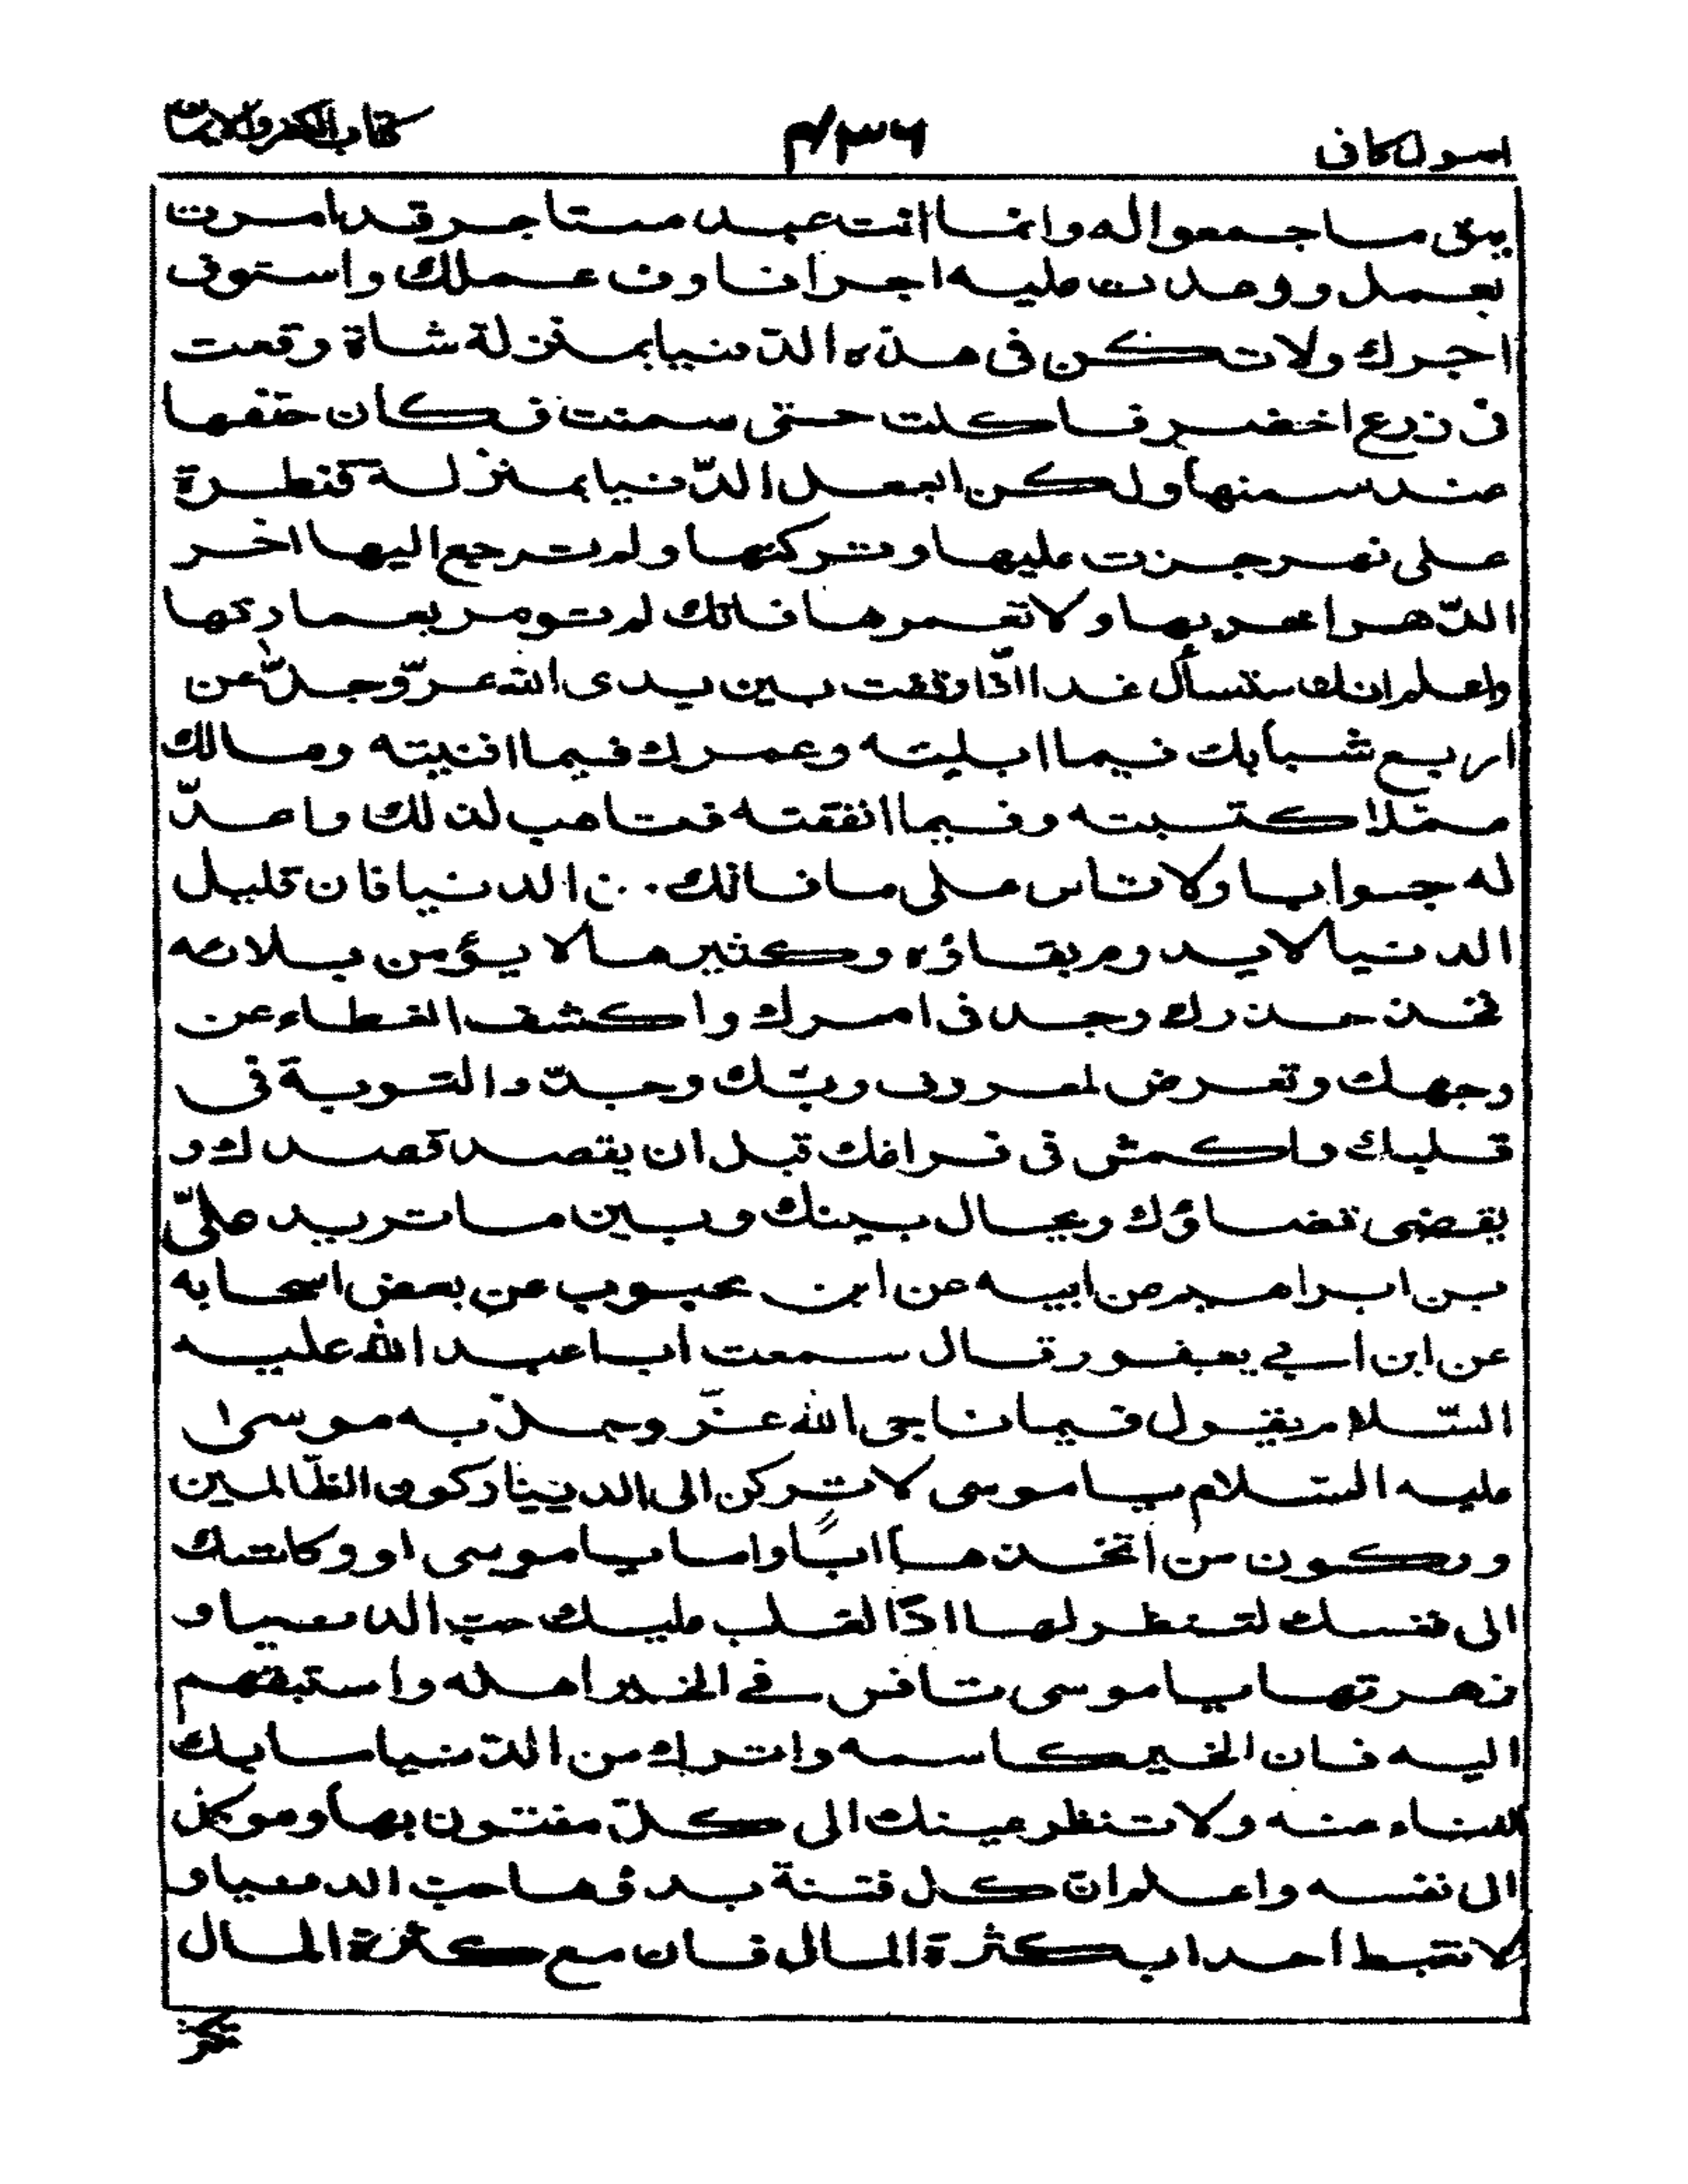 اسول كافى
۴۳۶
كتاب الكفر والايمان
يبق ما جمعوا له وانما انت عبد مستاجر قد امرت
بعمل ووعدت عليه اجرا فاوف عملك واستوف
اجرك ولا تكن فى هذه الدّنيا بمنزلة شاة وقعت
فى زرع اخضر فاكلت حتى سمنت فكان حتفها
عند سمنها ولكن اجعل الدّنيا بمنزلة قنطرة
على نهر جزت عليها وتركتها ولم ترجع اليها اخر
الدّهر اخربها ولا تعمرها فانّك لم تومر بعمارتها
واعلم انك ستسأل غدا اذا وقفت بين يدى الله عزّ وجلّ عن
اربع شبابك فيما ابليته وعمرك فيما افنيته ومالك
ممّا اكتسبته وفيما انفقته فتاهب لذلك واعدّ
له جوابا ولا تاس على ما فاتك من الدنيا فان قليل
الدنيا لا يدوم بقاؤه وكثيرها لا يؤمن بلائه
فخذ حذرك وجد فى امرك واكشف الغطاء عن
وجهك وتعرض لمعروف ربّك وجدّد التوبة فى
قلبك واكمش فى فراغك قبل ان يقصد قصدك و
يقضى قضاؤك ويحال بينك وبين ما تريد علىّ
بن ابراهيم عن ابيه عن ابن محبوب عن بعض اصحابه
عن ابن ابي يعفور قال سمعت ابا عبد الله عليه
السّلام يقول فيما ناجى الله عزّ وجلّ به موسى
عليه السّلام يا موسى لا تركن الى الدنيا ركون الظّالمين
وركون من اتخذها ابًا واما يا موسى لو وكلتك
الى نفسك لتنظر لها اذًا لغلب عليك حبّ الدنيا و
زهرتها يا موسى نافس في الخير اهله واستبقهم
اليه فان الخير كاسمه واترك من الدّنيا ما بك
الغناء عنه ولا تنظر عينك الى كلّ مفتون بها وموكل
الى نفسه واعلم انّ كل فتنة بدؤها حبّ الدنيا و
لا تغبط احدا بكثرة المال فان مع كثرة المال